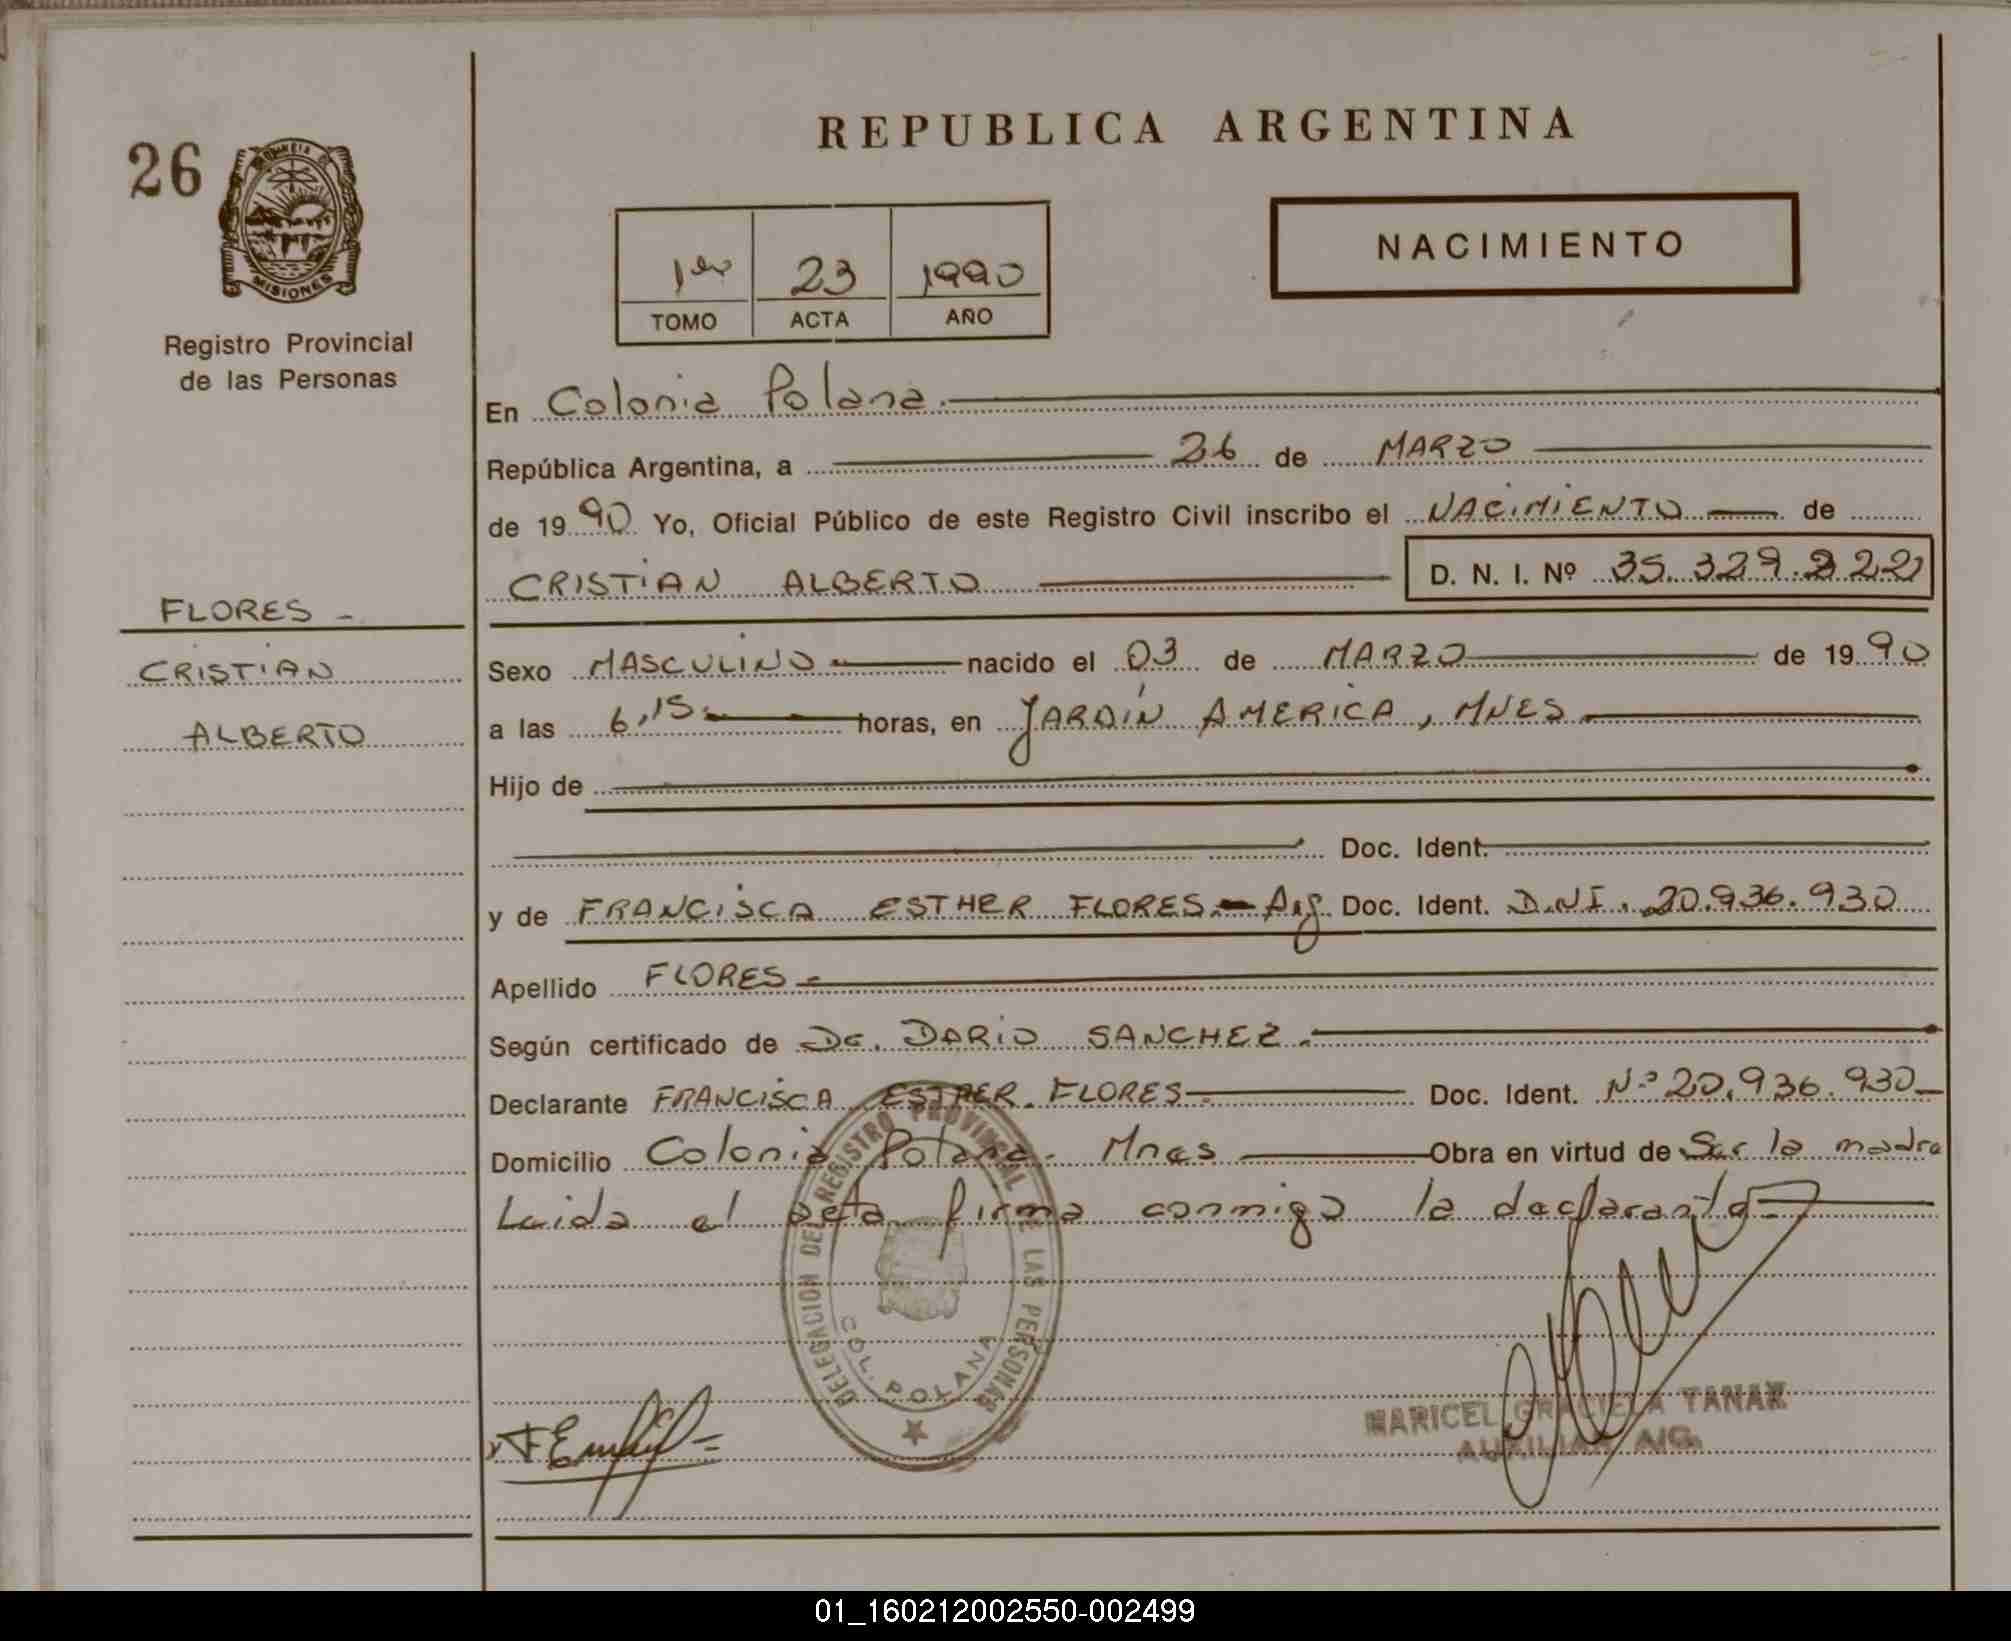 REPUBLICA ARGENTINA
26
PROVINCIA DE
MISIONES
Registro Provincial
de las Personas
NACIMIENTO
1er 23 1990
TOMO ACTA AÑO
En Colonia Polana.
República Argentina, a 26 de MARZO
de 1990 Yo, Oficial Público de este Registro Civil inscribo el NACIMIENTO de
CRISTIAN ALBERTO D. N. I. Nº 35.329.222
FLORES -
CRISTIAN
ALBERTO
Sexo MASCULINO nacido el 03 de MARZO de 1990
a las 6,15 horas, en JARDIN AMERICA, MNES
Hijo de
Doc. Ident.
y de FRANCISCA ESTHER FLORES.- Arg. Doc. Ident. D.N.I. 20.936.930
Apellido FLORES-
Según certificado de Dr. DARIO SANCHEZ.
Declarante FRANCISCA ESTHER FLORES- Doc. Ident. Nº 20.936.930-
Domicilio Colonia Polana- Mnes Obra en virtud de Ser la madre
Leida el acta firma conmigo la declarante-
DELEGACION DEL REGISTRO PROVINCIAL DE LAS PERSONAS
COL. POLANA
MARICEL GRACIELA TANAK
AUXILIAR A/C.
01_160212002550-002499